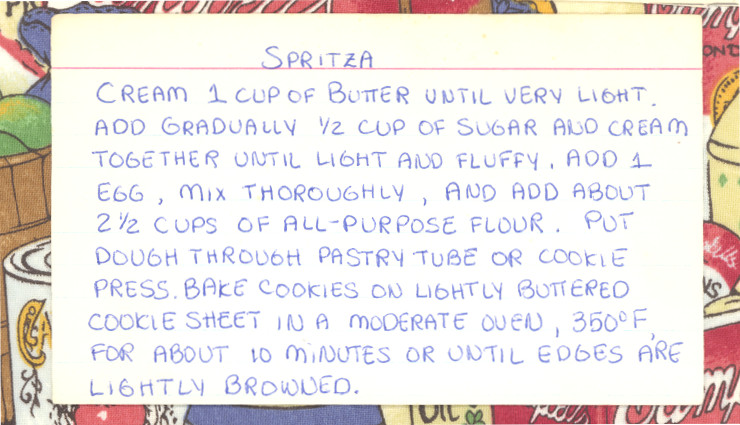 SPRITZA
CREAM 1 CUP OF BUTTER UNTIL VERY LIGHT.
ADD GRADUALLY 1/2 CUP OF SUGAR AND CREAM
TOGETHER UNTIL LIGHT AND FLUFFY. ADD 1
EGG, MIX THOROUGHLY, AND ADD ABOUT
2 1/2 CUPS OF ALL-PURPOSE FLOUR. PUT
DOUGH THROUGH PASTRY TUBE OR COOKIE
PRESS. BAKE COOKIES ON LIGHTLY BUTTERED
COOKIE SHEET IN A MODERATE OVEN, 350°F,
FOR ABOUT 10 MINUTES OR UNTIL EDGES ARE
LIGHTLY BROWNED.
OIL